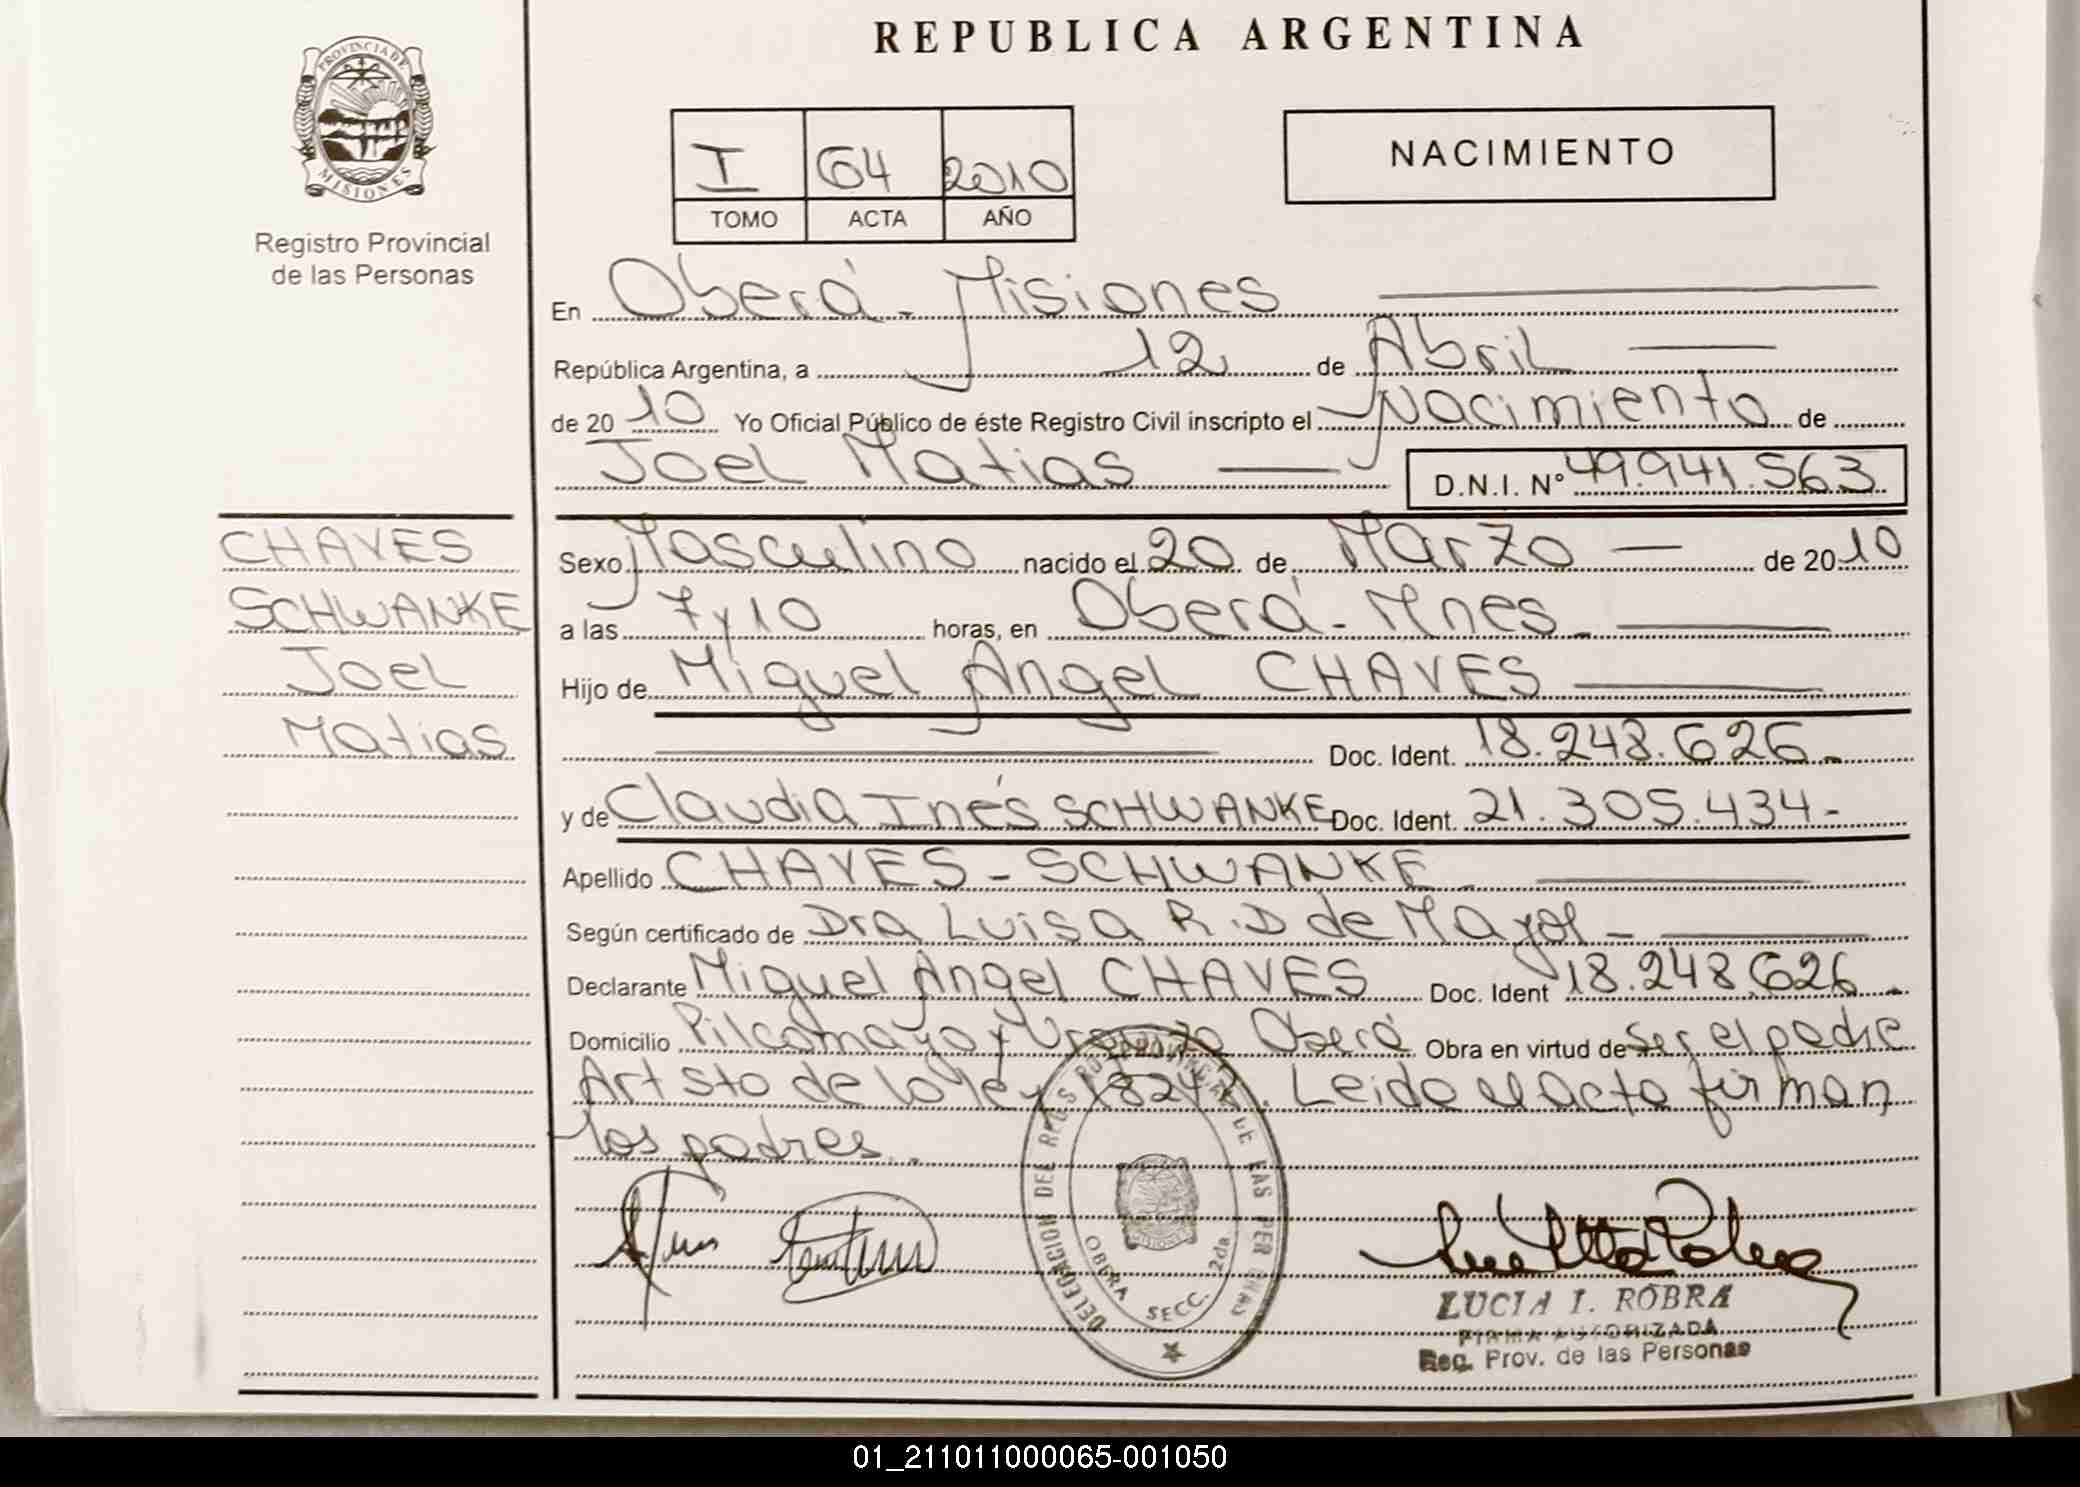 REPUBLICA ARGENTINA
PROVINCIA DE
MISIONES
Registro Provincial
de las Personas
I 64 2010
TOMO ACTA AÑO
NACIMIENTO
En Oberá - Misiones
República Argentina, a 12 de Abril
de 2010 Yo Oficial Público de éste Registro Civil inscripto el Nacimiento de
Joel Matias D.N.I. Nº 49.941.563
CHAVES
SCHWANKE
Joel
Matias
Sexo Masculino nacido el 20 de Marzo de 2010
a las 7 y 10 horas, en Oberá - Mnes
Hijo de Miguel Ángel CHAVES
Doc. Ident. 18.248.626.-
y de Claudia Inés SCHWANKE Doc. Ident. 21.305.434-
Apellido CHAVES - SCHWANKE
Según certificado de Dra Luisa R.D de Mayol -
Declarante Miguel Angel CHAVES Doc. Ident 18.248.626.
Domicilio Pilcomayo y Oberá Obra en virtud de ser el padre
Art 5to de la ley 18247. Leida el acta firman
los padres.
DELEGACION DEL REG PROVINCIAL DE LAS PERSONAS
OBERA SECC. 2da
LUCIA I. ROBRA
FIRMA AUTORIZADA
Reg. Prov. de las Personas
01_211011000065-001050